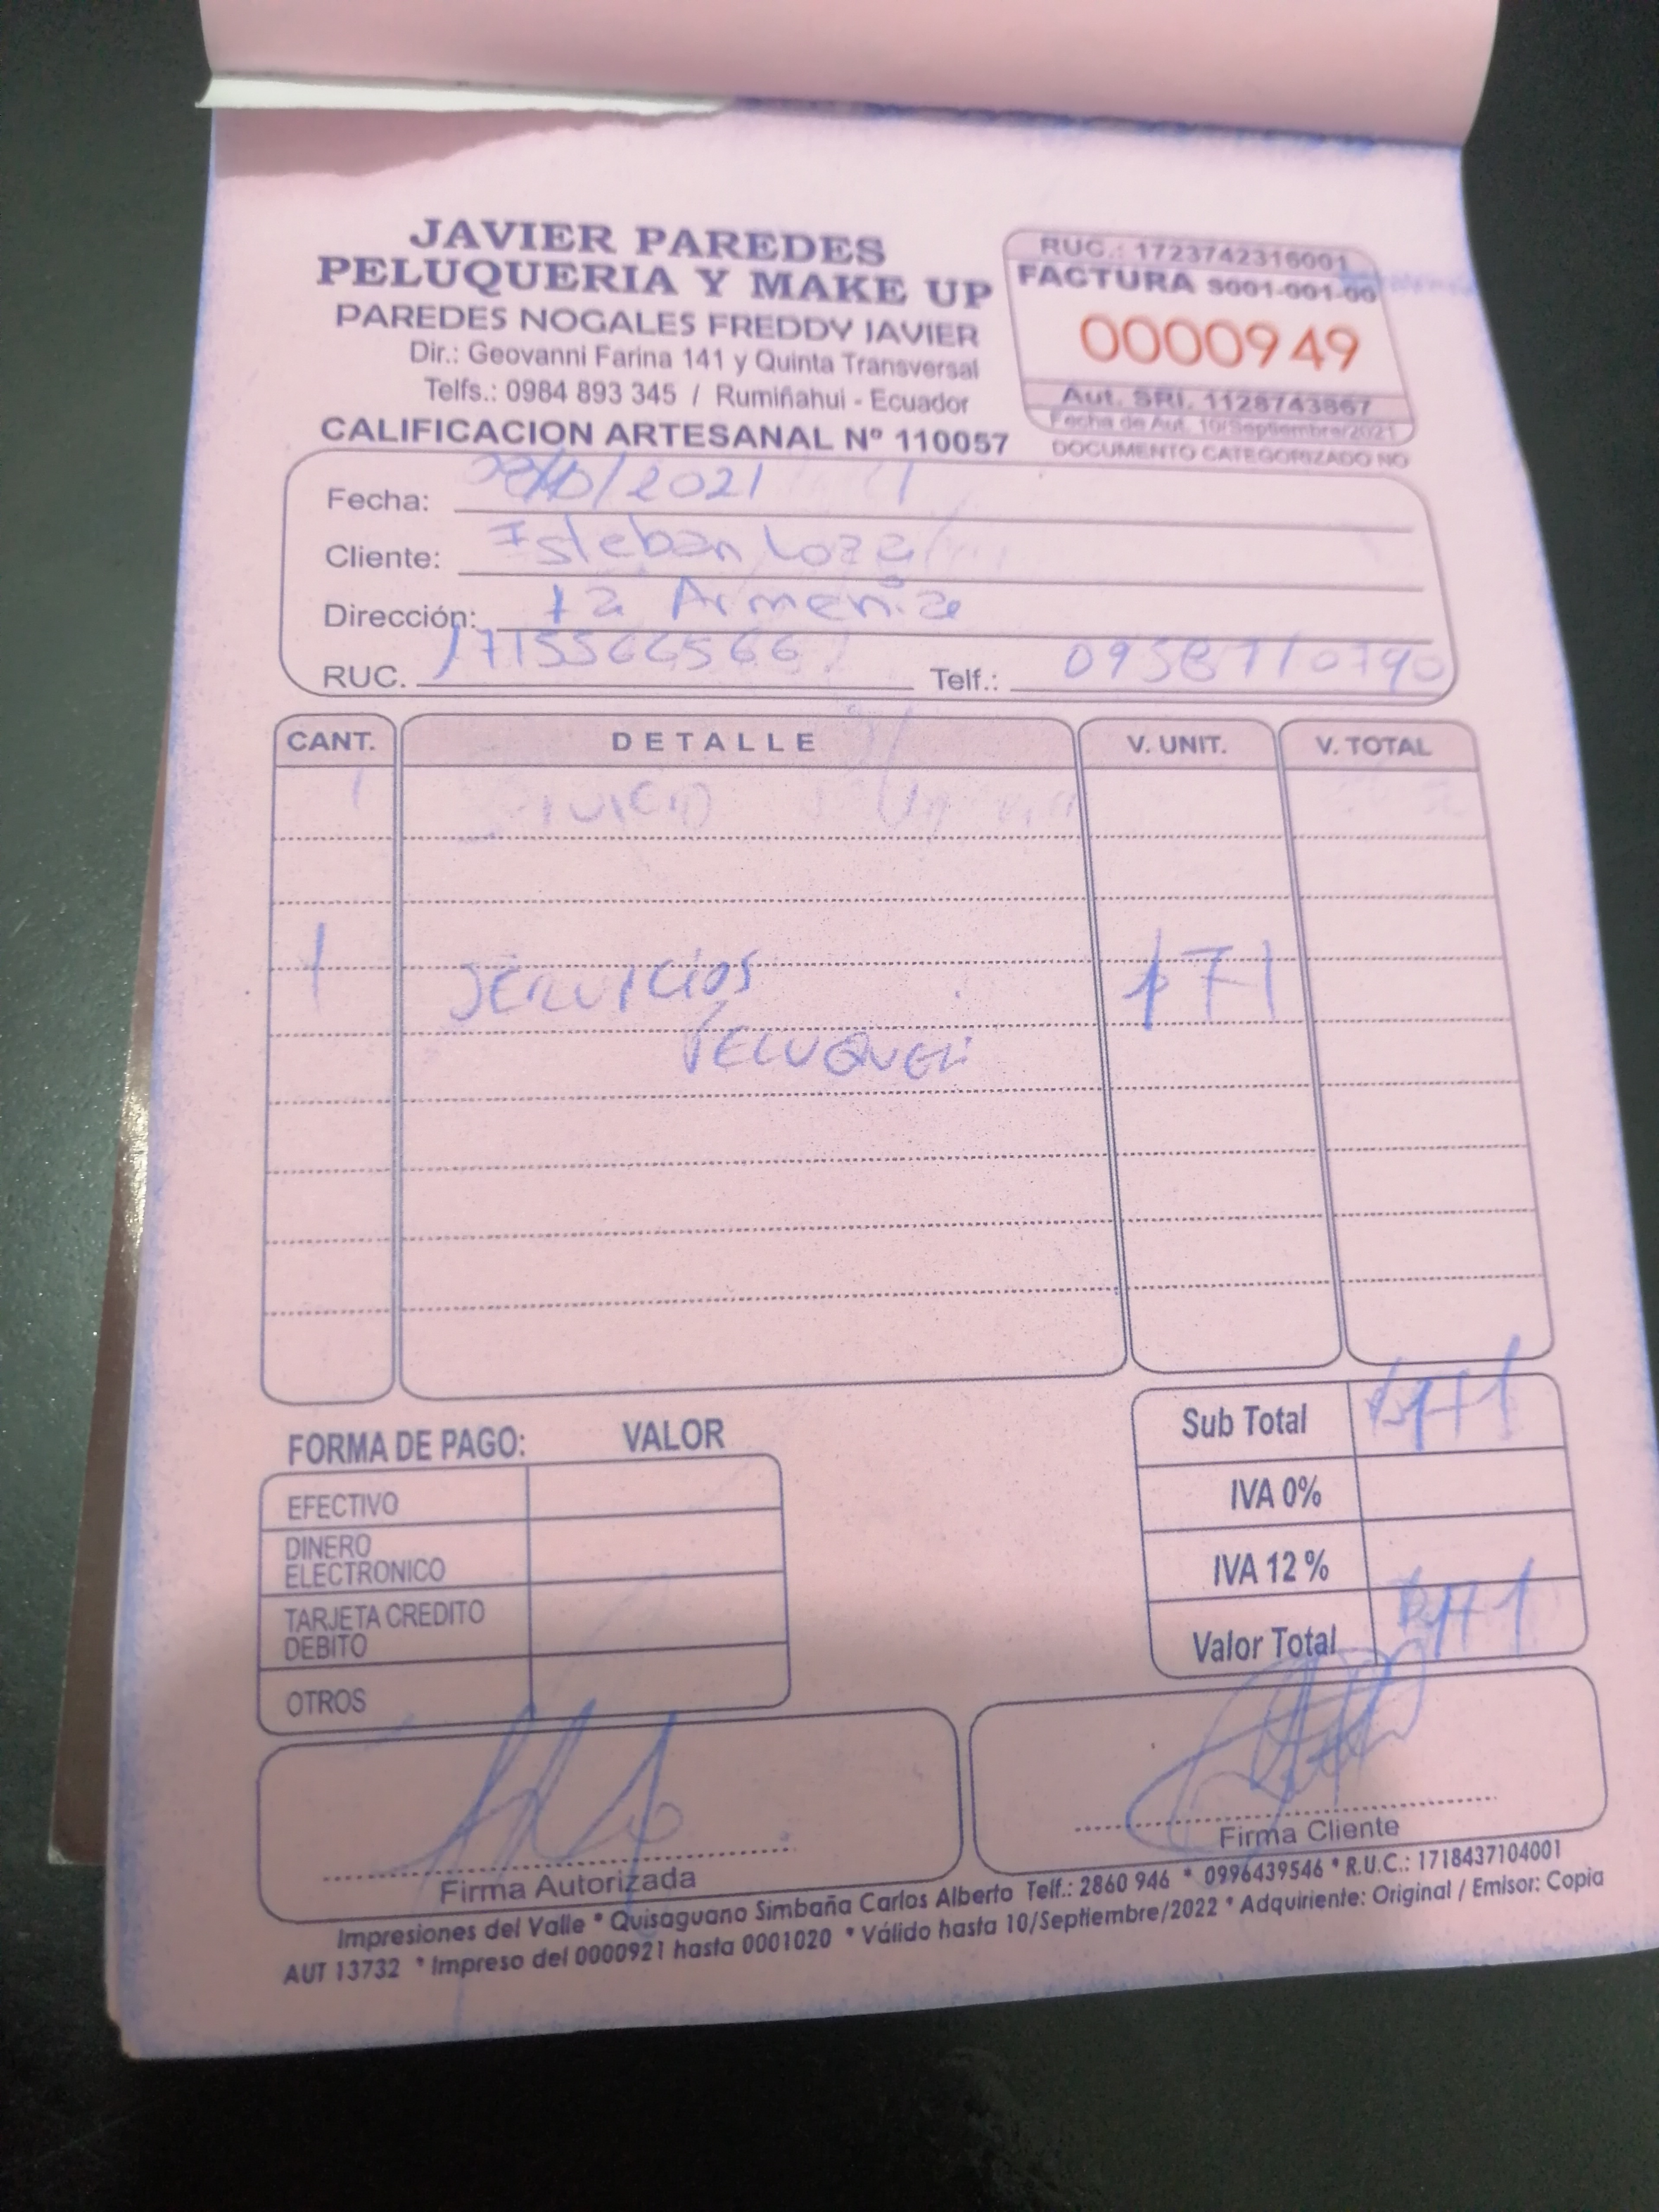 JAVIER PAREDES
PELUQUERIA Y MAKE UP
PAREDES NOGALES FREDDY JAVIER
Dir.: Geovanni Farina 141 y Quinta Transversal
Telfs.: 0984 893 345 / Rumiñahui - Ecuador
CALIFICACION ARTESANAL Nº 110057
RUC.: 1723742316001
FACTURA S001-001-00
0000949
Aut. SRI. 1128743867
Fecha de Aut. 10/Septiembre/2021
DOCUMENTO CATEGORIZADO NO
Fecha: /2021
Cliente: Esteban Loza
Dirección: La Armenia
RUC. Telf.:
CANT. DETALLE V. UNIT. V. TOTAL
1 SERVICIOS $71
PELUQUERI
FORMA DE PAGO: VALOR
EFECTIVO
DINERO
ELECTRONICO
TARJETA CREDITO
DEBITO
OTROS
Sub Total $71
IVA 0%
IVA 12 %
Valor Total $71
Firma Autorizada
Firma Cliente
Impresiones del Valle * Quisaguano Simbaña Carlos Alberto Telf.: 2860 946 * 0996439546 * R.U.C.: 1718437104001
AUT 13732 * Impreso del 0000921 hasta 0001020 * Válido hasta 10/Septiembre/2022 * Adquiriente: Original / Emisor: Copia